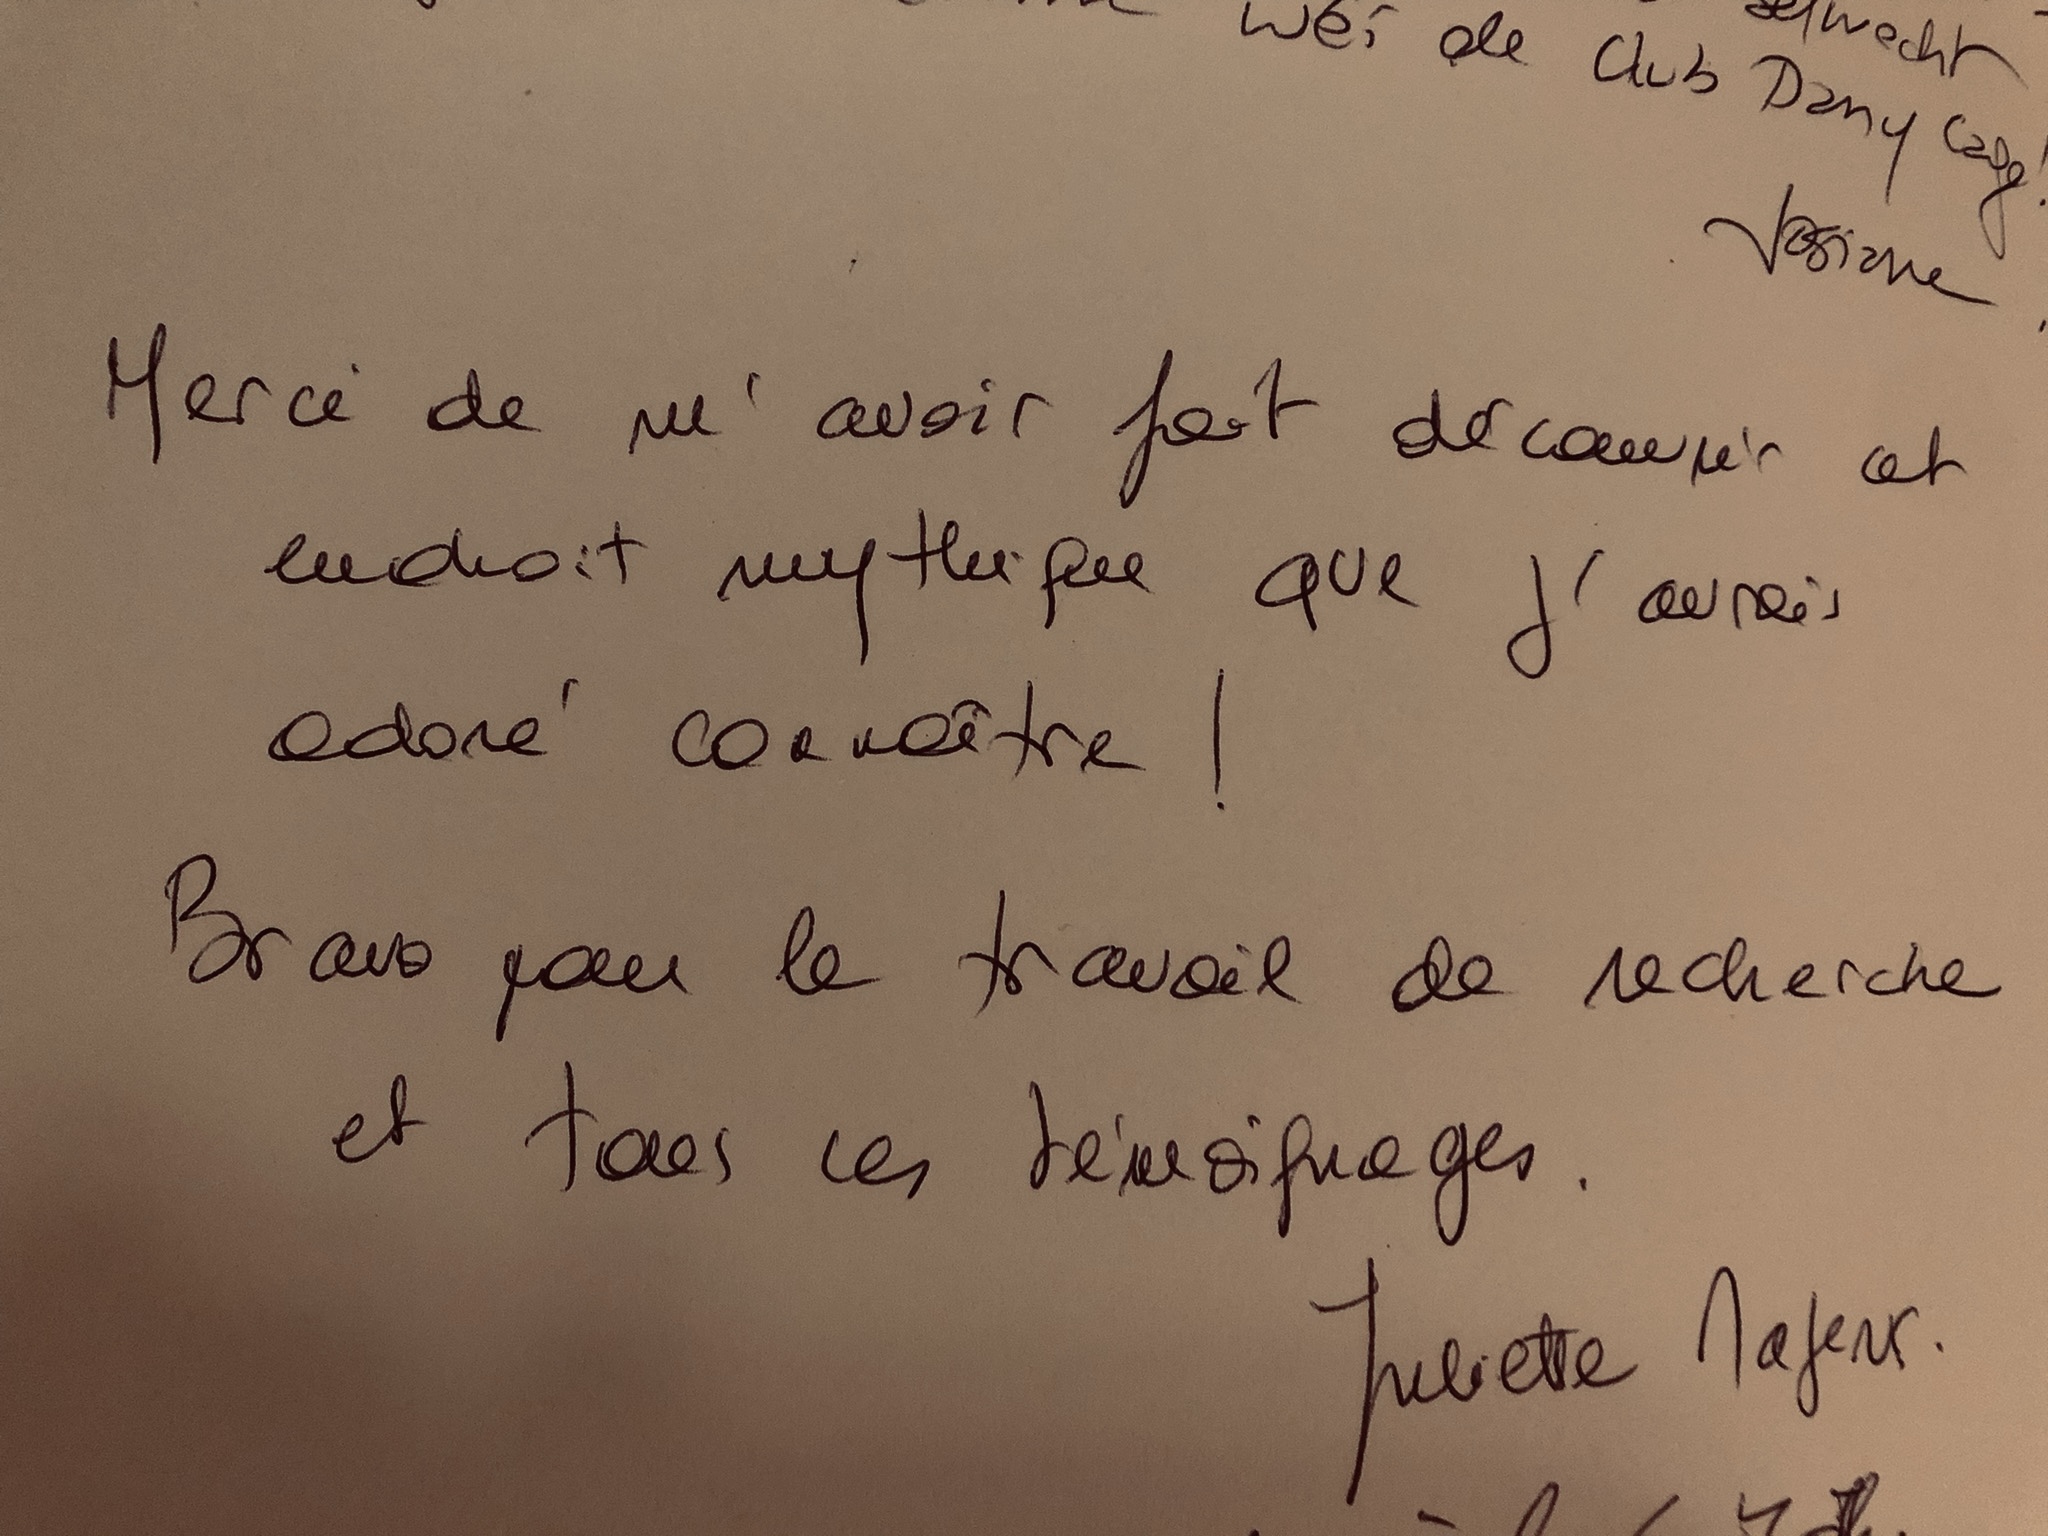 wéi de Club Dany Cage!
Josiane
Merci de m'avoir fait découvrir cet
endroit mythique que j'aurais
adoré connaître !
Bravo pour le travail de recherche
et tous ces témoignages.
Juliette